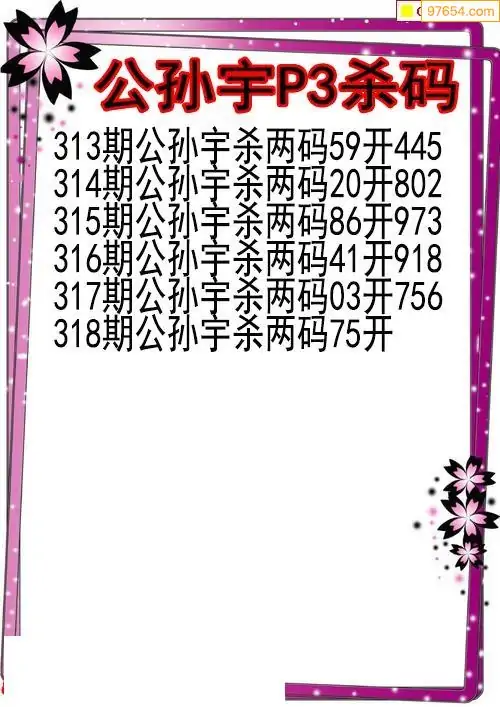 97654.com
公孙宇P3杀码
313期公孙宇杀两码59开445
314期公孙宇杀两码20开802
315期公孙宇杀两码86开973
316期公孙宇杀两码41开918
317期公孙宇杀两码03开756
318期公孙宇杀两码75开